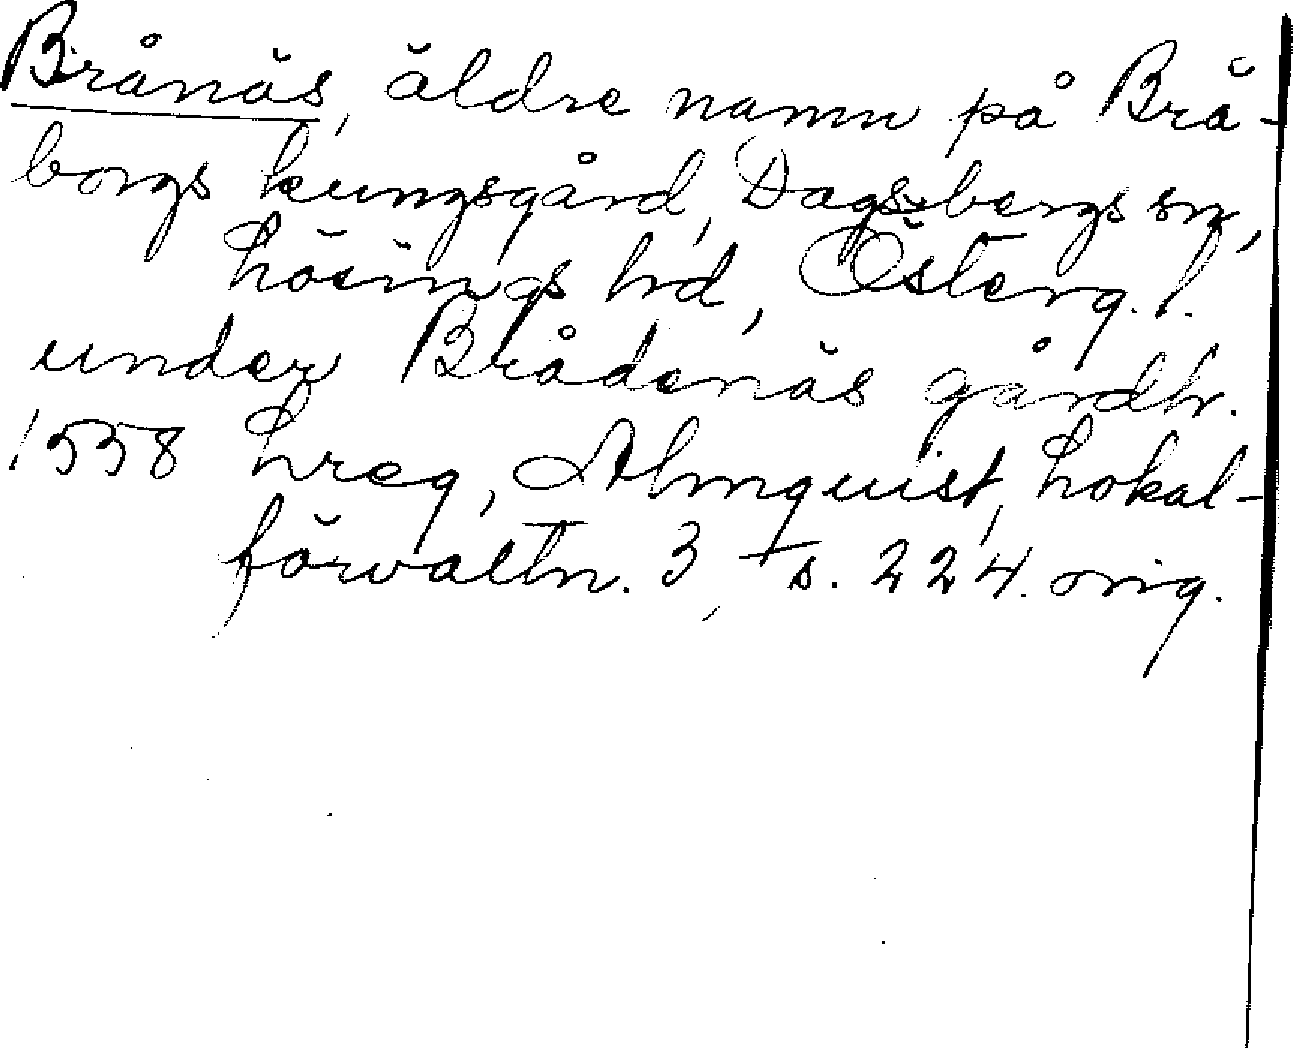 Brånäs, äldre namn på Brå-
borgs kungsgård, Dagsbergs sn,
Lösings hd, Österg. l.
under Brådenäs gårdh.
1558 Lreg, Almquist, Lokal-
förvaltn. 3, s. 224. orig.